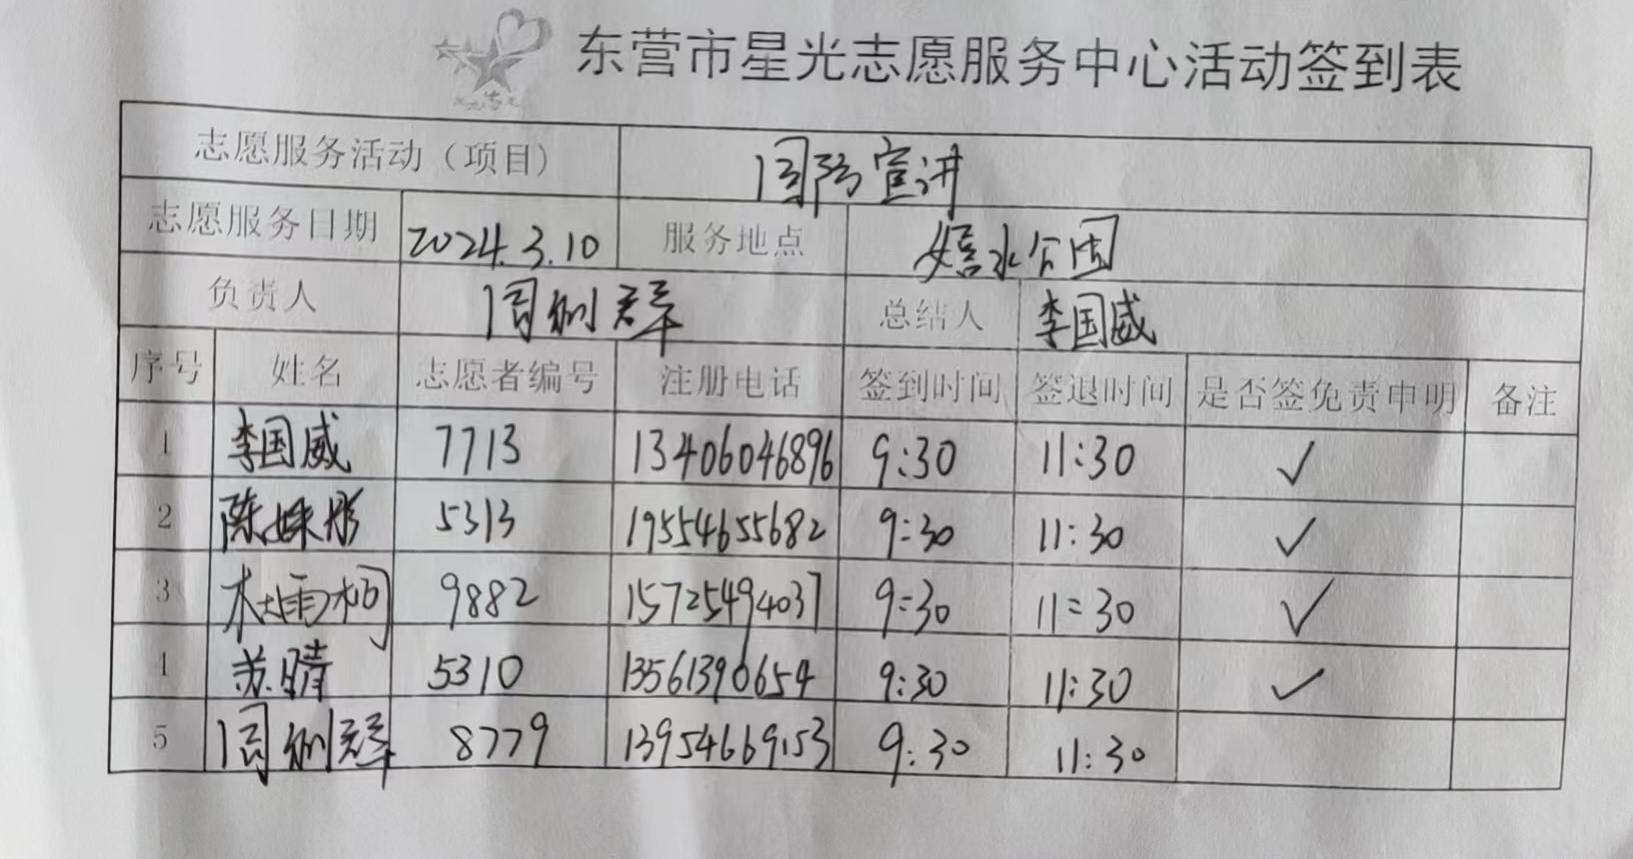 东营市星光志愿服务中心活动签到表
志愿服务活动（项目） 国防宣讲
志愿服务日期 2024.3.10 服务地点 嬉水公园
负责人 周刚群 总结人 李国威
序号 姓名 志愿者编号 注册电话 签到时间 签退时间 是否签免责申明 备注
1 李国威 7713 13406046896 9:30 11:30 ✓
2 陈姝彤 5313 19554655682 9:30 11:30 ✓
3 杜雨柯 9882 15725494037 9:30 11:30 ✓
4 苏晴 5310 13561390654 9:30 11:30 ✓
5 周刚群 8779 13954669153 9:30 11:30